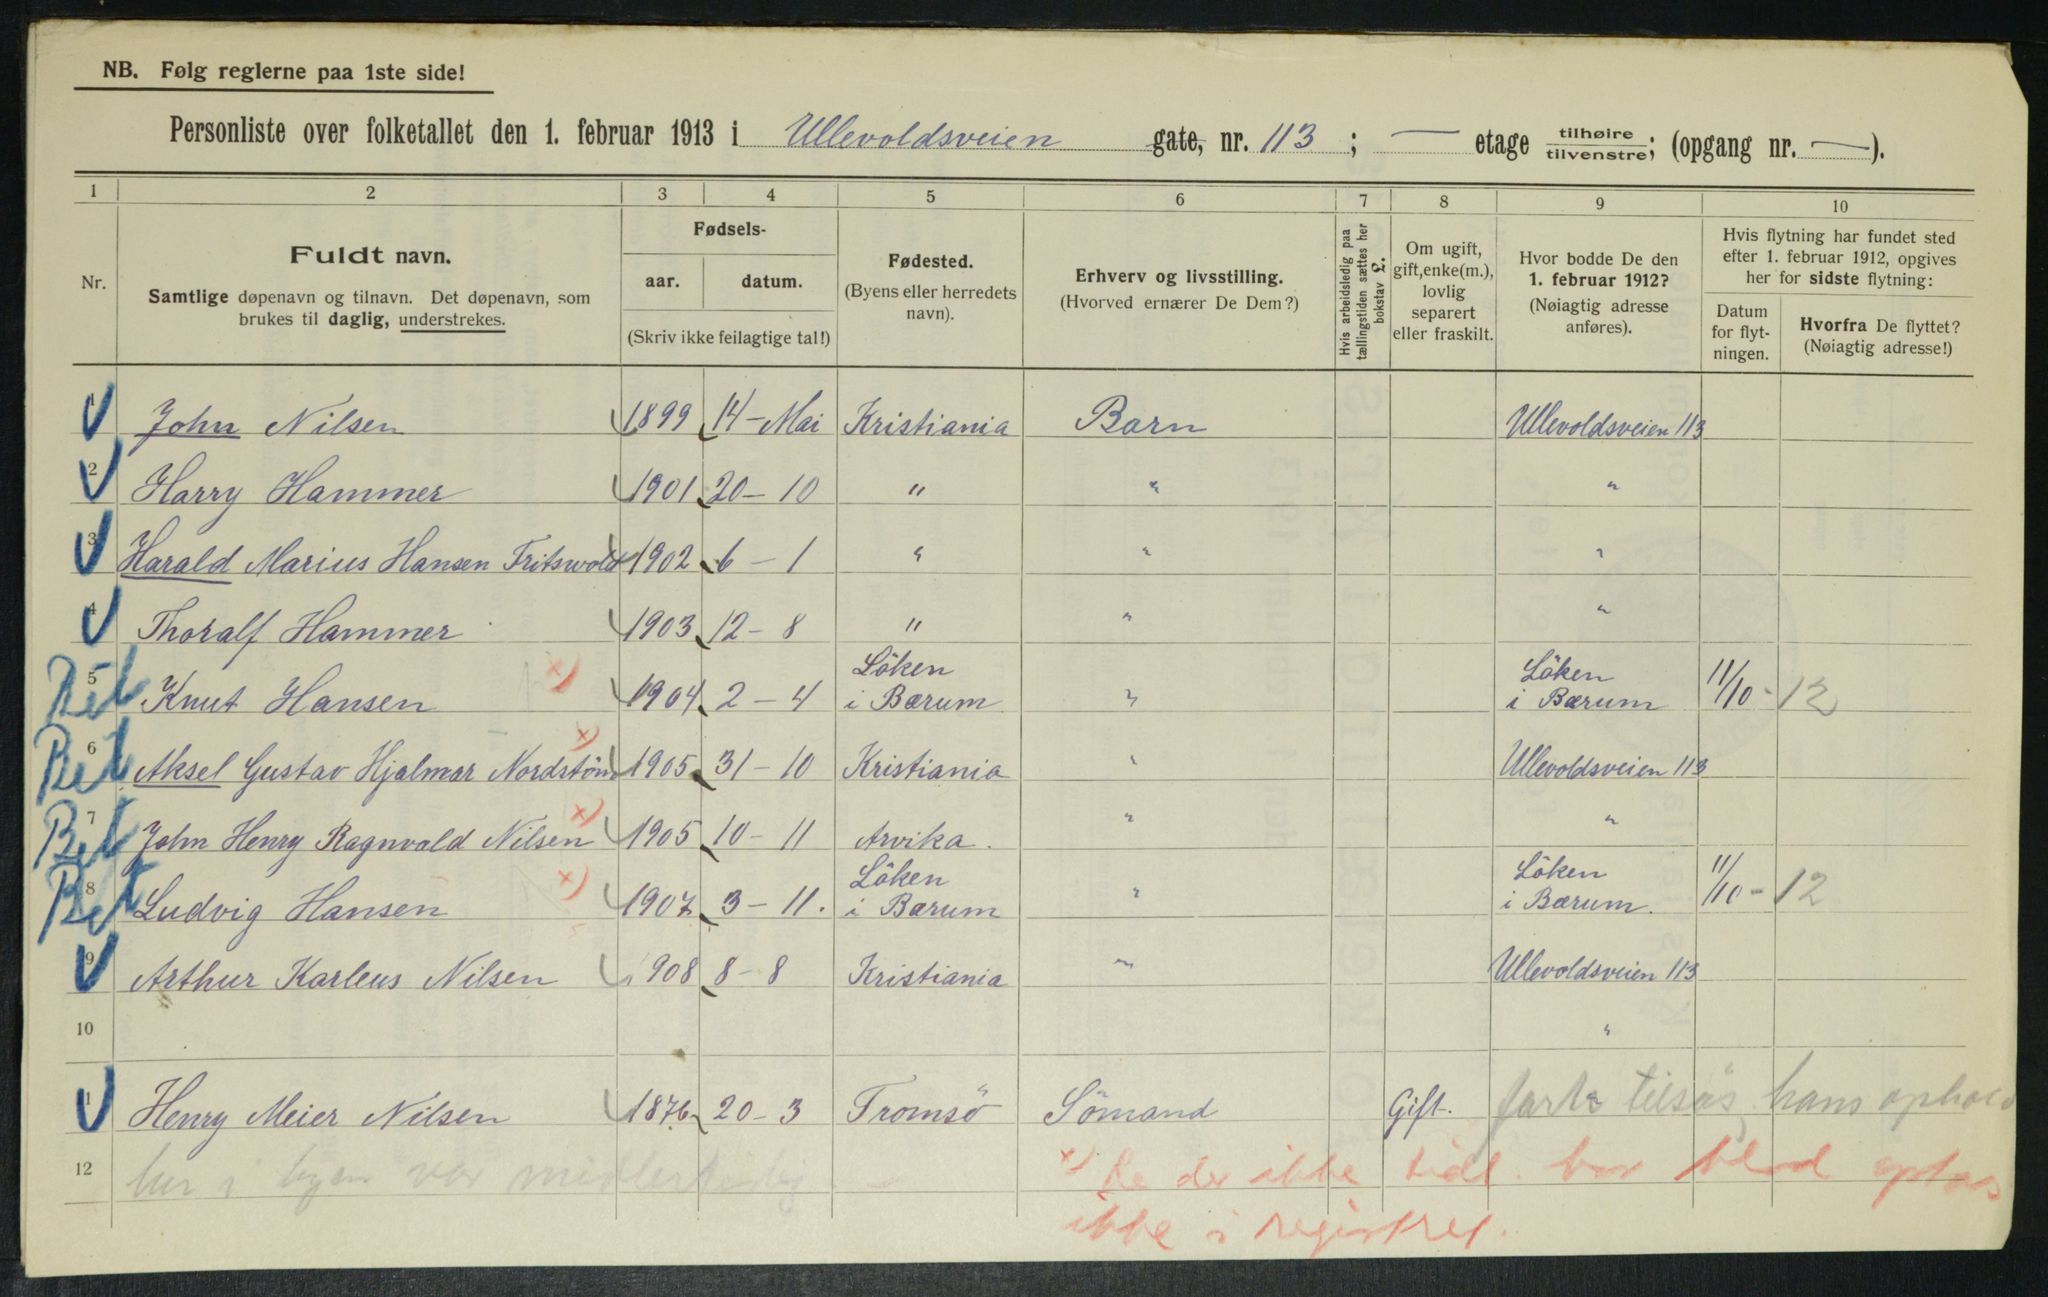 NB. Følg reglerne paa 1ste side!
Personliste over folketallet den 1. februar 1913 i Ullevoldsveien gate, nr. 113 ; — etage tilhøire tilvenstre; (opgang nr. — ).
1 2 3 4 5 6 7 8 9 10
Nr.
Fuldt navn.
Samtlige døpenavn og tilnavn. Det døpenavn, som
brukes til daglig, understrekes.
Fødsels-
aar. datum.
(Skriv ikke feilagtige tal!)
Fødested.
(Byens eller herredets
navn).
Erhverv og livsstilling.
(Hvorved ernærer De Dem?)
Hvis arbeidsledig paa
tællingstiden sættes her
bokstav L.
Om ugift,
gift, enke(m.),
lovlig
separert
eller fraskilt.
Hvor bodde De den
1. februar 1912?
(Nøiagtig adresse
anføres).
Hvis flytning har fundet sted
efter 1. februar 1912, opgives
her for sidste flytning:
Datum
for flyt-
ningen.
Hvorfra De flyttet?
(Nøiagtig adresse!)
1 John Nilsen 1899 14 – Mai Kristiania Barn Ullevoldsveien 113
2 Harry Hammer 1901 20 – 10 " " "
3 Harald Marius Hansen Fritswold 1902 6 – 1 " " "
4 Thoralf Hammer 1903 12 – 8 " " "
Bet 5 Knut Hansen x) 1904 2 – 4 Löken i Bærum " Löken i Bærum 11/10 - 12
Bet 6 Aksel Gustav Hjalmar Nordstöm x) 1905 31 – 10 Kristiania " Ullevoldsveien 113
Bet 7 John Henry Ragnvald Nilsen x) 1905 10 – 11 Arvika. " "
Bet 8 Ludvig Hansen x) 1907 3 – 11. Löken i Bærum " Löken i Bærum. 11/10 - 12
9 Arthur Karleus Nilsen 1908 8 – 8 Kristiania " Ullevoldsveien 113
10 "
11 Henry Meier Nilsen 1876 20 – 3 Tromsö Sömand Gift. tilsøs, hans ophold
12 her i byen var midlertidig
x) De der ikke har blad optas
ikke i registret.